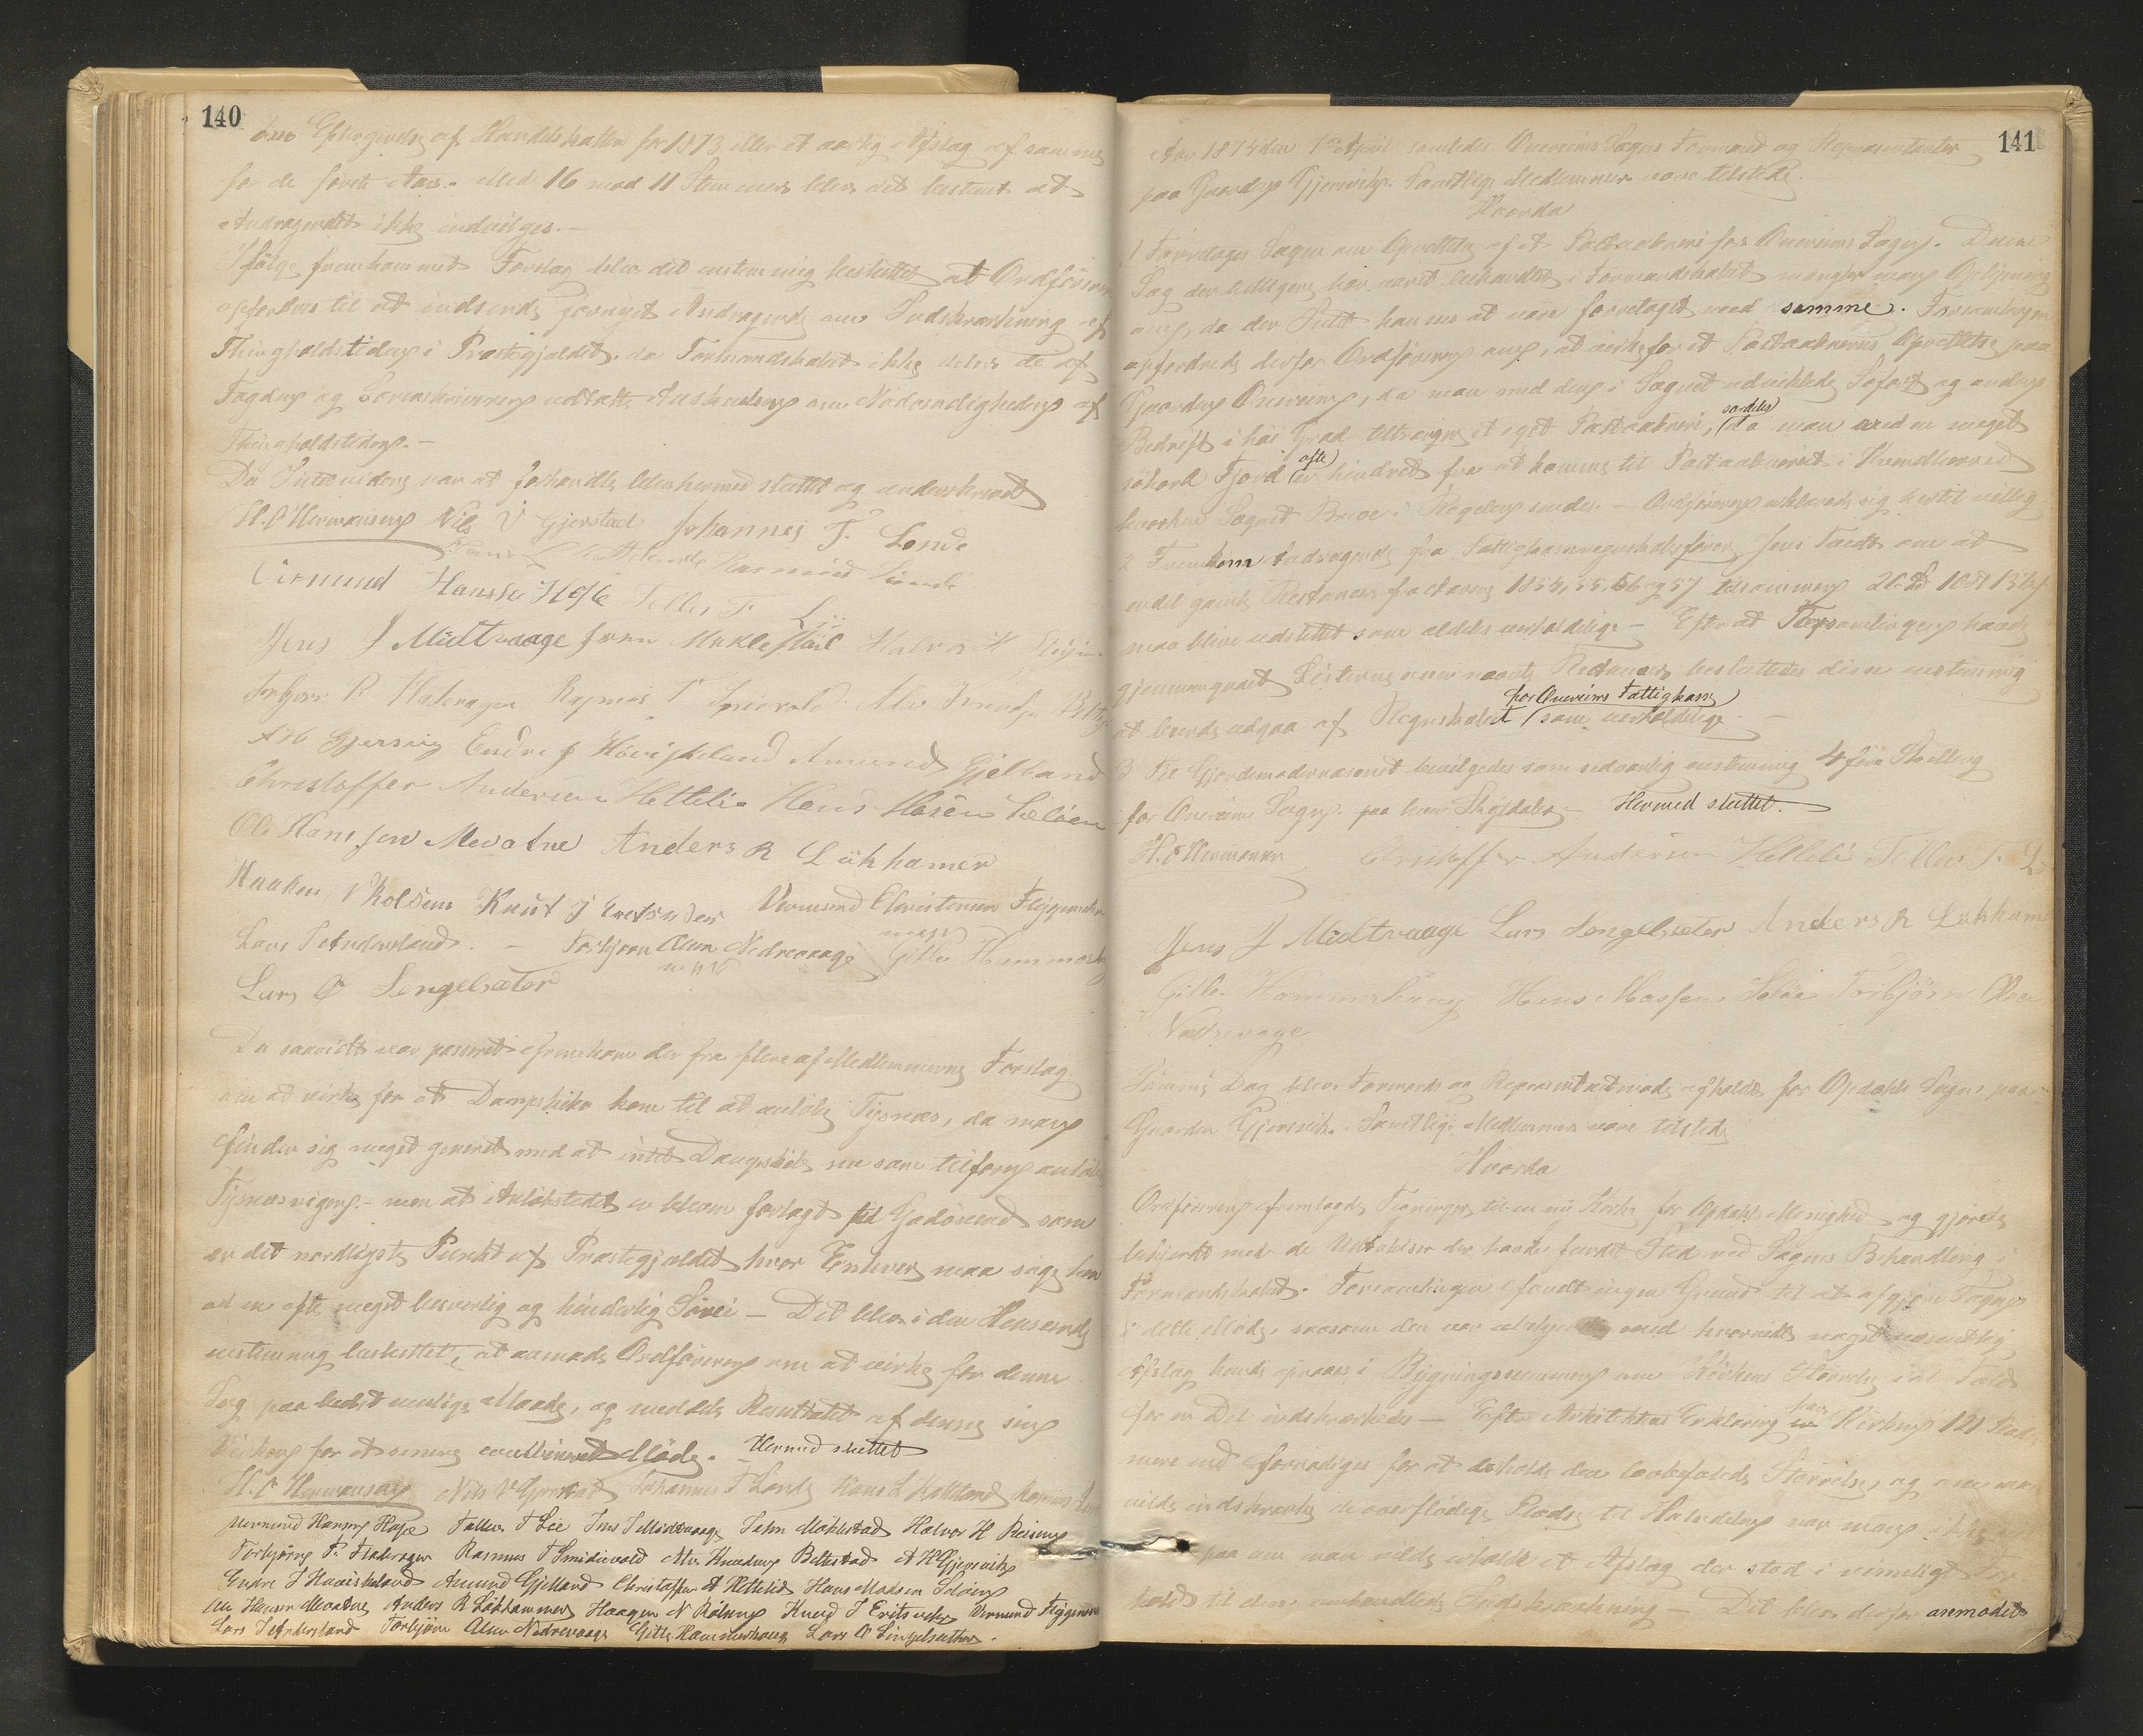 140
om Eftergivelse af Handelskatten for 1873 eller et aarlig Afslag af samme
for de første Aar. – Med 16 mod 11 Stemmer blev det bestemt at
Andragendet ikke indvilges. –
Ifølge fremkommet Forslag blev det enstemmig besluttet at Ordføreren
opfordres til at indsende fornyet Andragende om Indskrænkning af
Thingholdstiden i Præstegjeldet, da Formandskabet ikke deler de af
Fogden og Sorenskriveren udtalte Anskuelser om Nødvendigheden af
Thingholdstiden. –
Da Intet videre var at forhandle blev hermed sluttet og underskrevet
H. O Hermansen Nils V Gjerstad Johannes T. Lande
Hans L Hatteland Rasmus Lunde
Vermund Hansen Hope Tellev T. Lie
Jens J Midtvaage John Meklestad Halvor H Reisen
Torbjørn P. Flakevagen Rasmus T Smievold Mons Knudsen Beltestad
A H Gjersvig Endre J Hovişkeland Amund Gjelland
Christoffer Andersen Hettelie Hans Madsen Søløen
Ole Hansen Mevatne Anders R Løkhamer
Haaken N Rolsen Knut J Eretsveder Vermund Christensen Flygansvær
Lars T Anderland. – Torbjørn Olsen Nedrevaage Gitle Hammerhoug
Lars O Lengelsæter
Da saavidt var passeret fremkom der fra flere af Medlemmerne Forslag
om at virke for at Dampskibe kom til at anløbe Tysnæs, da man
finder sig meget generet med at intet Dampskib nu som tilforn anløber
Tysnæsvigen. – men at Anløbstedet er bleven forlagt til Godøsund som
er det nordligste Punkt af Præstegjeldet hvor Enhver maa søge hen
ad en ofte meget besværlig og hinderlig Søvei – Det blev i den Henseende
enstemmig besluttet, at anmode Ordføreren om at virke for denne
Sag paa bedst mulige Maade, og meddele Resultatet af denne sin
Virken for et senere combineret Møde. – Hermed sluttet
H. O Hermansen Nils V Gjerstad Johannes T Lande Hans L Hatteland Rasmus Lunde
Vermund Hansen Hope Tellev T Lie Jens J Midtvaage John Meklestad Halvor H Reisen
Torbjørn P. Flakevagen Rasmus T Smidievold Mons Knudsen Beltestad A H Gjersvik
Endre J Hoviskeland Amund Gjelland Christoffer A Hettelid Hans Madsen Søløen
Ole Hansen Mevatne Anders R Løkhammer Haagen N Rolsen Knud J Eritsveder Vermund Flygansvær
Lars T Anderland Torbjørn Olsen Nedrevaage Gitle Hammerhoug Lars O Lingelsæther.
141
Aar 1874 den 7de April samledes Onereims Sogns Formænd og Repræsentanter
paa Gaarden Gjersvik. Samtlige Medlemmer vare tilstede.
Hvorda
1 Foretoges Sagen om Oprettelse af et Postaabneri for Onereims Sogn. Denne
Sag der tidligere har været behandlet i Formandskabet mangler man Oplysning
om, da der Intet kan sees at være foretaget med samme. Forsamlingen
opfordrede derfor Ordføreren om, at virke for et Postaabneries Oprettelse paa
Gaarden Onereim, da man med den i Sognet udviklede Søfart og anden
Bedrift i høi Grad tiltrænger et eget Postaabneri, særdeles da man ved en meget
søhard Fjord ofte er hindret fra at komme til Postaabneriet i Kvindherred
hvorhen Sognets Breve i Regelen sendes. – Ordføreren erklærede sig hertil villig
2 Fremkom Andragende fra Fattigkasseregnskabsfører Jens Tveit om at
endel gamle Restancer fra Aarene 1854, 55. 56 og 57 tilsammen 26 Spd 10 13
maa blive udslettet som aldeles uerholdelige – Efter at Forsamlingen havde
gjennemgaaet Listerne over nævnte Restancer besluttedes disse enstemmig
at burde udgaa af Regnskabet for Onereims Fattigkasse som uerholdelige. –
3 Til Gjordemodervæsenet bevilgedes som sædvanlig enstemmig 4 fire Skilling
for Onereims Sogn. paa hver Skyldaler. – Hermed sluttet.
H. O Hermansen Christoffer Andersen Hettelie Tellev T. Lie
Jens J Midtvaage Lars Lengelsæter Anders R Løkhamer
Gitle Hammerhaug Hans Massen Søløe Torbjørn Olsen
Nedrevage
Samme Dag blev Formands og Repræsentantmøde afholdt for Opdahls Sogn paa
Gaarden Gjersvik. Samtlige Medlemmer vare tilstede
Hvorda
Ordføreren fremlagde Tegninger til en ny Kirke for Opdahls Menighed og gjorde
bekjendt med de Udtalelser der havde fundet Sted ved Sagens Behandling i
Formandskabet. Forsamlingen fandt ingen Grund til at afgjøre Sagen
i dette Møde, saasom den var afhængig med hvorvidt noget væsentlig
Afslag kunde opnaaes i Bygningssummen om Kirkens Størrelse i al Fald
for en Del indskrænkedes – Efter Arkitektens Erklæring har Kirken 121 Pladse
mere end fornødiges for at erholde den lovbefalede Størrelse, og om man
vilde indskrænke de overflødige Pladse til Halvdelen var man ikke
paa om man vilde erholde et Afslag der stod i rimeligt For-
hold til den omhandlede Indskrænkning – Det blev derfor anmodet